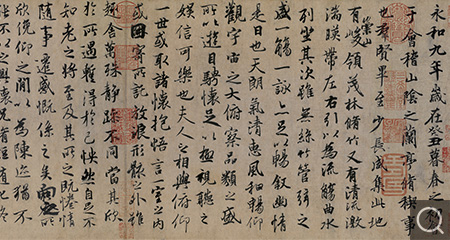 永和九年歲在癸丑暮春之初
于會稽山陰之蘭亭脩稧事
也群賢畢至少長咸集此地
有崇山峻領茂林脩竹又有清流激
湍暎帶左右引以為流觴曲水
列坐其次雖無絲竹管弦之
盛一觴一詠亦足以暢敘幽情
是日也天朗氣清惠風和暢仰
觀宇宙之大俯察品類之盛
所以遊目騁懷足以極視聽之
娛信可樂也夫人之相與俯仰
一世或取諸懷抱悟言一室之內
或因寄所託放浪形骸之外雖
趣舍萬殊靜躁不同當其欣
於所遇暫得於己怏然自足不
知老之將至及其所之既惓情
隨事遷感慨係之矣向之所
欣俛仰之閒以為陳迹猶不
能不以之興懷況脩短隨化終